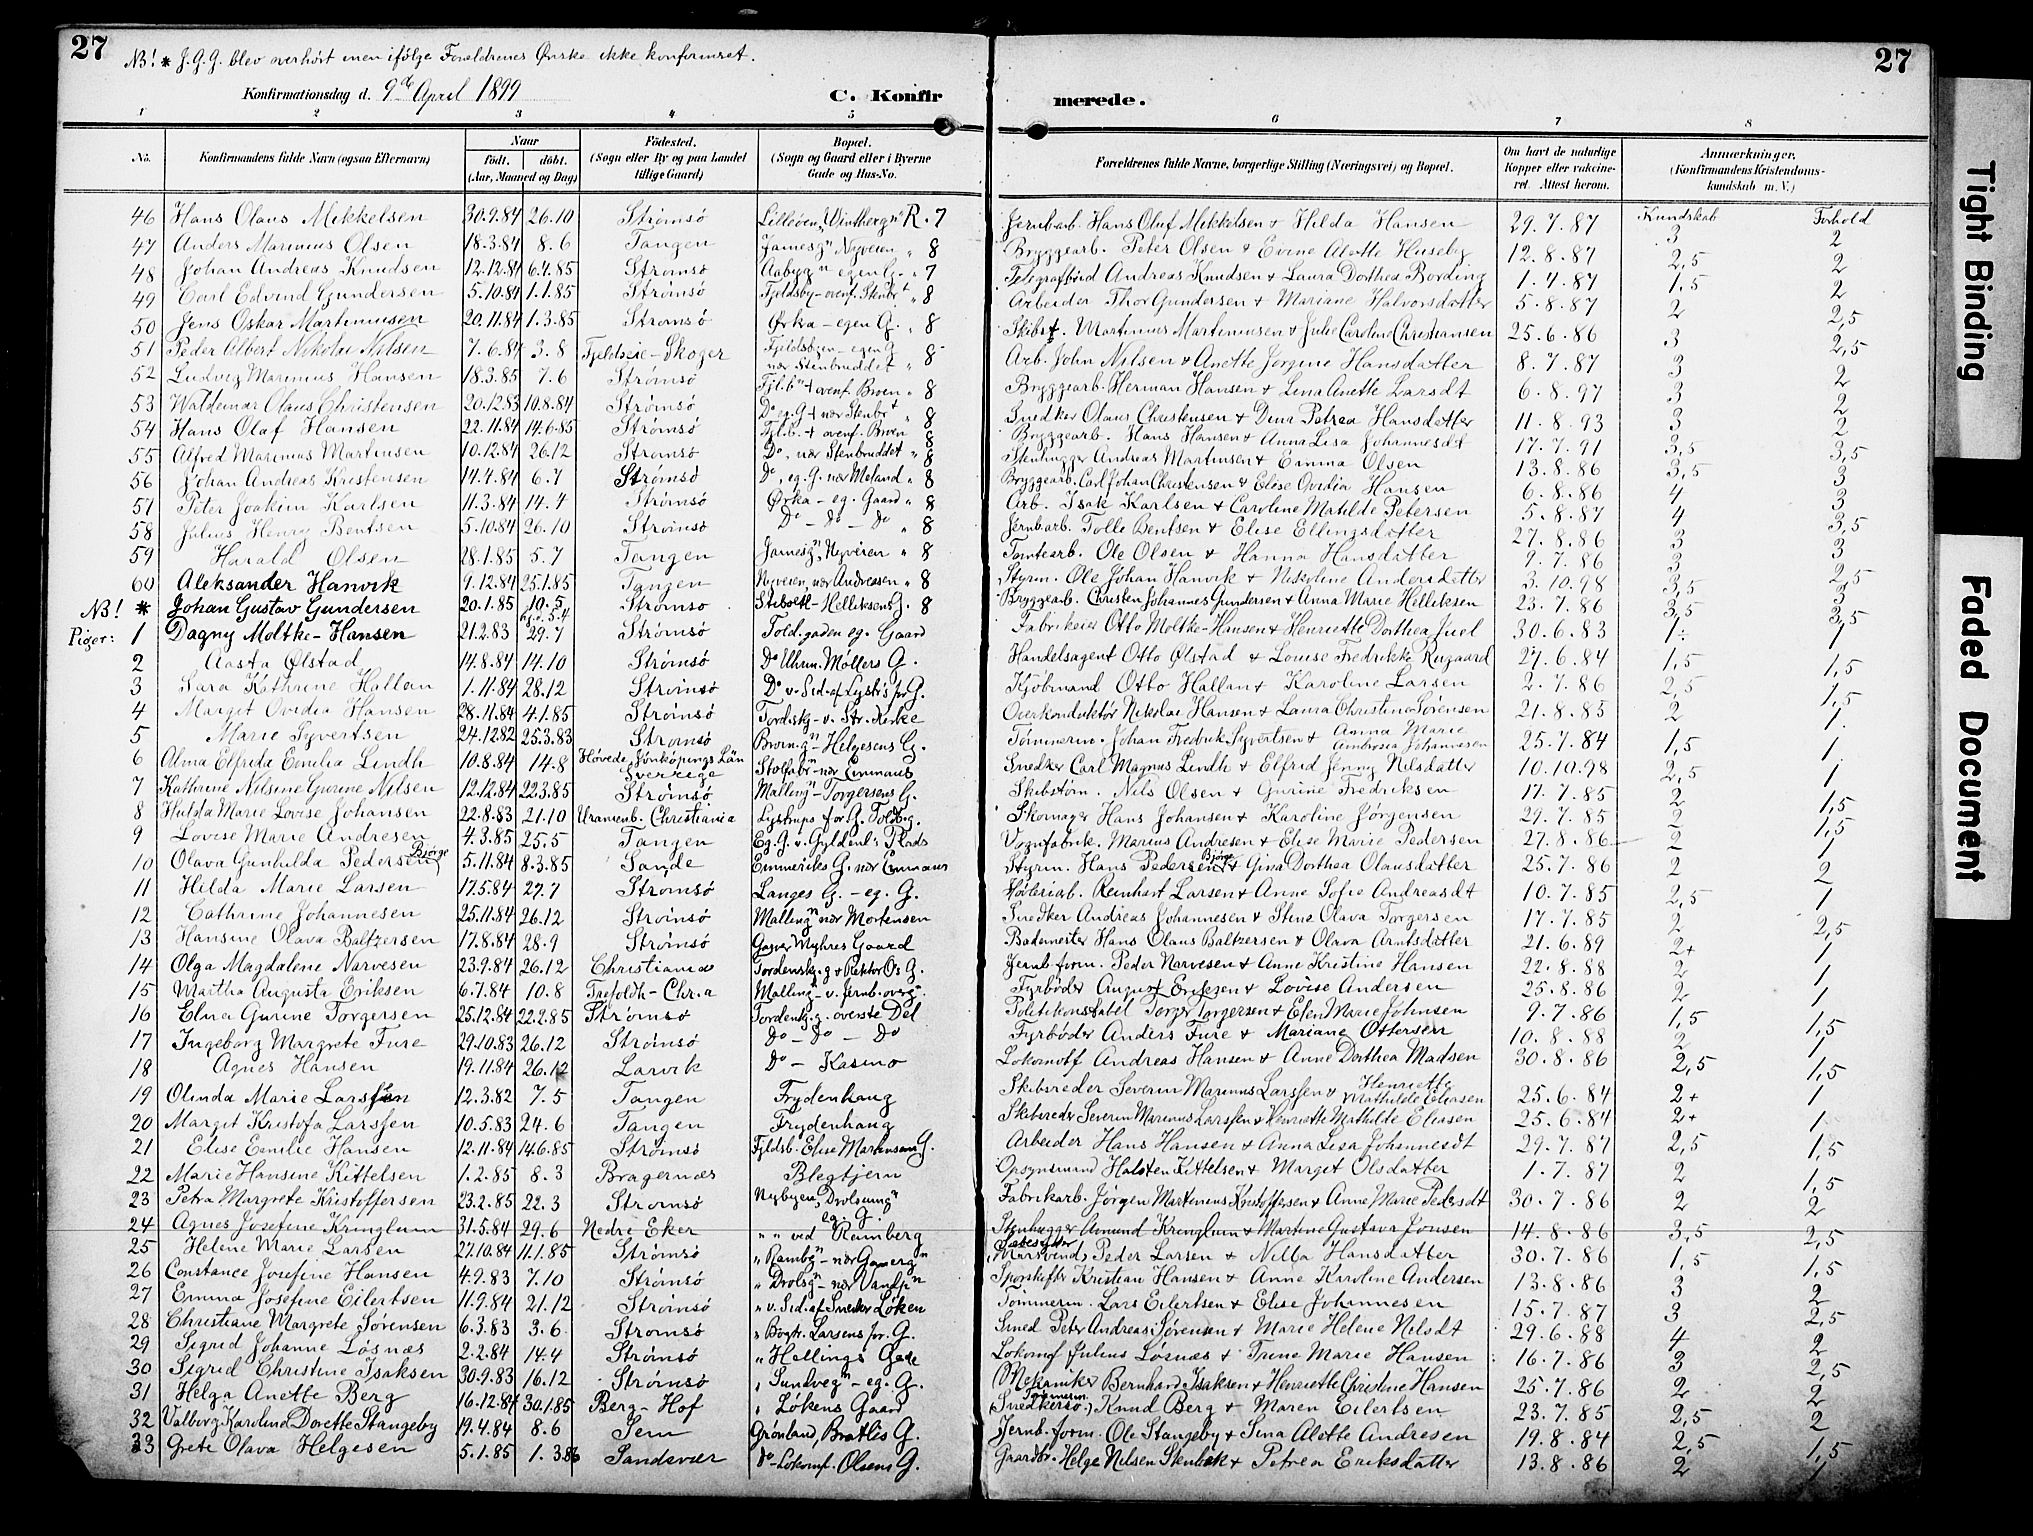 27
27
NB! * J.G.G. blev overhørt men ifölge Forældrenes Ønske ikke konfirmeret.
Konfirmationsdag d. 9de April 1899
C. Konfir merede.
1 2 3 4 5 6 7 8
No. Konfirmandens fulde Navn (ogsaa Efternavn) Naar født. døbt. (Aar, Maaned og Dag) Fødested. (Sogn eller By og paa Landet tillige Gaard) Bopæl. (Sogn og Gaard eller i Byerne Gade og Hus-No. Forældrenes fulde Navne, borgerlige Stilling (Næringsvei) og Bopæl. Om havt de naturlige Kopper eller vaccineret. Attest herom. Anmærkninger. (Konfirmandens Kristendomskundskab m. V.)
Kundskab Forhold
46 Hans Olaus Mikkelsen 30.9.84 26.10 Strømsö R. 7 Jernbarb. Hans Oluf Mikkelsen + Hilda Hansen 29.7.87 3 2
47 Anders Marinius Olsen 18.3.84 8.6 Tangen Jamesgn Nyveien „ 8 Bryggearb. Peter Olsen + Evine Alette Huseby 12.8.87 2,5 2
48 Johan Andreas Knudsen 12.12.84 6.4.85 Strömsö Aabygn egen G. „ 7 Telegrafbud Andreas Knudsen + Laura Dorthea Bording 1.4.87 1,5 2
49 Carl Edvind Gundersen 5.10.84 1.1.85 Strömsö Fjeldsby- ovenf. Stenbrt „ 8 Arbeider Thor Gundersen + Mariane Halvorsdatter 5.8.87 2 2,5
50 Jens Oskar Martiniusen 20.11.84 1.3.85 Strømsö Ørka - egen G. „ 8 Skibst. Martinius Martiniusen + Julie Caroline Christiansen 25.6.86 3 2,5
51 Peder Albert Nikolai Nilsen 7.6.84 3.8 Fjeldseie-Skoger Fjeldsbyen - egen G nær Stenbruddet „ 8 Arb. John Nilsen + Anette Jørgine Hansdatter 8.7.87 3 2
52 Ludvig Marinius Hansen 18.3.85 7.6 Strømsö Fjlbn + ovenf. Broen „ 8 Bryggearb. Herman Hansen + Lina Anette Larsdt 6.8.97 3 2
53 Waldemar Olaus Christensen 20.12.83 10.8.84 Strømsö Do eg. G + nær Stenbrt „ 8 Snedker Olaus Christensen + Dina Petrea Hansdatter 11.8.93 3 2
54 Hans Olaf Hansen 22.11.84 14.6.85 Strömsö Fjlb. + ovenf. Broen 8 Bryggearb. Hans Hansen + Anna Lisa Johannesdt 17.7.91 3,5 3,5
55 Alfred Marinius Martinsen 10.12.84 26.12 Strømsö Do, nær Stenbruddet „ 8 Stenhugger Andreas Martinsen + Emma Olsen 13.8.86 3,5 3
56 Johan Andreas Kristensen 14.4.84 6.7 Strømsö Do, eg. G. nær Meland „ 8 Bryggearb. Carl Johan Christensen + Elise Ovidia Hansen 6.8.86 4 3
57 Peter Joakim Karlsen 11.3.84 14.4 Strømsö Ørka - eg. Gaard „ 8 Arb. Isak Karlsen + Caroline Matilde Petersen 5.8.87 4 3,5
58 Julius Henry Bentsen 5.10.84 26.10 Strømsö Do - Do - Do „ 8 Jernbarb. Tolle Bentsen + Elise Ellingsdatter 27.8.86 3 3
59 Harald Olsen 28.1.85 5.7 Tangen Jamesgn, Nyveien „ 8 Tomtearb. Ole Olsen + Hanna Hansdatter 9.7.86 3 2,5
60 Aleksander Hanvik 9.12.84 25.1.85 Tangen Nyveien, nær Andreassen „ 8 Styrm. Ole Johan Hanvik + Nikoline Andersdatter 3.10.98 3,5 3
NB! * Johan Gustav Gundersen 20.1.85 10.5 Strømsö Helliksens G. 8 Bryggearb. Christen Johannes Gundersen + Anna Marie Helliksen 23.7.86 3,5 3,5
Piger: 1 Dagny Moltke-Hansen 21.2.83 29.7 Strømsö Told.gaden eg. Gaard Fabrikeier Otto Moltke-Hansen + Henriette Dorthea Juel 30.6.83 1 1
2 Aasta Ølstad 14.8.84 14.10 Strømsö Do Uhrm. Møllers G. Handelsagent Otto Ølstad + Louise Fredrikke Rugaard 27.6.84 1,5 1,5
3 Sara Kathrine Hallan 1.11.84 28.12 Strømsö Do v. Sid. af Lystrps G. Kjöbmand Otto Hallan + Karoline Larsen 2.7.86 2,5 1,5
4 Margit Ovidia Hansen 28.11.84 4.1.85 Strømsö Tordskg- v. Str. Kirke Overkonduktör Nikolai Hansen + Laura Christine Sörensen 21.8.85 2 1
5 Marie Syvertsen 24.12.82 25.3.83 Strømsö Brorn.gn - Helgesens G. Tömmerm. Johan Fredrik Syvertsen + Anna Marie Ambrosia Johannesen 25.7.84 1,5 1
6 Alma Elfrida Emilia Lindh 10.8.84 14.8 Hövede, Jönköpings Län Sverrige Stolfabrn nær Emmaus Snedker Carl Magnus Lindh + Elfrid Jenny Nilsdatter 10.10.98 2,5 1
7 Kathrine Nilsine Gurine Nilsen 12.12.84 22.3.85 Strømsö Mallingn - Torgersens G. Skibstöm. Nils Olsen + Gurine Fredriksen 17.7.85 2 1,5
8 Hulda Marie Lovise Johansen 22.8.83 21.10 Uranienb. Christiania Lystrups for. G. Toldbg. Skomager Hans Johansen + Karoline Jörgensen 29.7.85 2 1,5
9 Lovise Marie Andresen 4.3.85 25.5 Tangen Eg. G. v. Gyldenl: Plads Vognfabrik. Marius Andresen + Elise Marie Pedersen 27.8.86 2 1
10 Olava Gunhilda Pedersen Bjørge 5.11.84 8.3.85 Sande Emmeriks G. nær Emmaus Styrm. Hans Pedersen Bjørge + Gina Dorthea Olausdatter 25.7.86 2 2
11 Hilda Marie Larsen 17.5.84 27.7 Strømsö Langes G. - eg. G. Høvleriarb. Reinhart Larsen + Anne Sofie Andreasdt 10.7.85 2,5 1
12 Cathrine Johannesen 25.11.84 26.12 Strömsö Mallinggn nær Mortensen Snedker Andreas Johannesen + Stine Olava Torgersen 17.7.85 2 2,5
13 Hansine Olava Baltzersen 17.8.84 28.9 Strømsö Gasver Myhres Gaard Bademester Hans Olaus Baltzersen + Olava Arntsdatter 21.6.89 2+ 1
14 Olga Magdalene Narvesen 23.9.84 26.12 Christiania Tordenskg. g + Rektor Os G. Jernb.form. Peder Narvesen + Anne Kristine Hansen 22.8.88 2 1
15 Martha Augusta Eriksen 6.7.84 10.8 Trefoldh- Chr.a Mallingn- v. Jernb. overg. Fyrbøder August Eriksen + Lovise Andersen 25.8.86 2 1
16 Elna Gurine Torgersen 25.12.84 22.2.85 Strømsø Tordenskg. g. øverste Del Politikonstabel Torger Torgersen + Elen Marie Johnsen 9.7.86 1,5 1,5
17 Ingeborg Margrete Fure 29.10.83 26.12 Strømsö Do - Do - Do Fyrbøder Anders Fure + Mariane Ottersen 10.8.88 2 1
18 Agnes Hansen 19.11.84 26.12 Larvik Do - Kasino Lokomotf Andreas Hansen + Anne Dorthea Madsen 30.8.86 2,5 1,5
19 Olinda Marie Larssen 12.3.82 7.5 Tangen Frydenhaug Skibsreder Severin Marinius Larssen + Henriette Mathilde Eliasen 25.6.84 2+ 1
20 Margit Kristofa Larssen 10.5.83 24.6 Tangen Frydenhaug Skibsreder Severin Marinius Larssen + Henriette Mathilde Eliasen 25.6.84 2+ 1
21 Elise Emilie Hansen 12.11.84 14.6.85 Strömsö Fjeldsb. Elise Martinsens G. Arbeider Hans Hansen + Anna Lisa Johannesdt 29.7.87 2,5 1,5
22 Marie Hansine Kittelsen 1.2.85 8.3 Bragernæs Blegtjern Opsynsmand Halsten Kittelsen + Marget Olsdatter 1.7.87 2 1,5
23 Petra Margrete Kristoffersen 23.2.85 22.3 Strømsö Nybyen, eg. G. Fabrikarb. Jörgen Martinius Kristoffersen + Anne Marie Pedersdt 30.7.86 2 2
24 Agnes Josefine Kringlum 31.5.84 29.6 Nedre Eker „ „ ved Ramberg Stenhugger Amund Kringlum + Martine Gustava Jonsen 14.8.86 3,5 2,5
25 Helene Marie Larsen 27.10.84 11.1.85 Strømsö „ Rambgn - nær Peder Larsen + Nilla Hansdatter 30.7.86 1,5 1,5
26 Constance Josefine Hansen 4.9.83 7.10 Strømsö „ Drolsgn - nær Sporskifter Kristian Hansen + Anne Karoline Andersen 13.8.86 3 2
27 Emma Josefine Eilertsen 11.9.84 21.12 Strømsö „ v. Sid. af Snedker Löken Tömmerm. Lars Eilertsen + Elise Johannesen 15.7.87 3 2,5
28 Christiane Margrete Sørensen 6.3.83 3.6 Strömsö „ Bogtr. Larsens for. G. Smed Peter Andreas Sørensen + Marie Helene Nilsdt 29.6.88 4 2
29 Sigrid Johanne Løsnæs 2.2.84 14.4 Strømsö „ Hellings Gade Lokomof Julius Løsnæs + Trine Marie Hansen 16.7.86 3 2,5
30 Sigrid Christine Isaksen 30.9.83 16.12 Strømsö „ Sundvegn - eg. G. Mekaniker Bernhard Isaksen + Henriette Christine Hansen 25.7.86 2 2
31 Helga Anette Berg 16.12.84 30.1.85 Berg - Hof „ Lökens Gaard Tömmerm. Knud Berg + Maren Eilertsen 23.7.85 2,5 2
32 Valborg Karoline Dorette Stangeby 19.4.84 8.6 Sem Grønland, Bratlis G. Jernb.form. Ole Stangeby + Sina Alette Andresen 19.8.84 2,5 1,5
33 Grete Olava Helgesen 5.1.85 1.3.86 Sandsvær do-Lokomf. Olsens G. Gaardbr. Helge Nilsen Stenbæk + Petrea Eriksdatter 13.8.86 2 1
Tight Binding
Faded Document